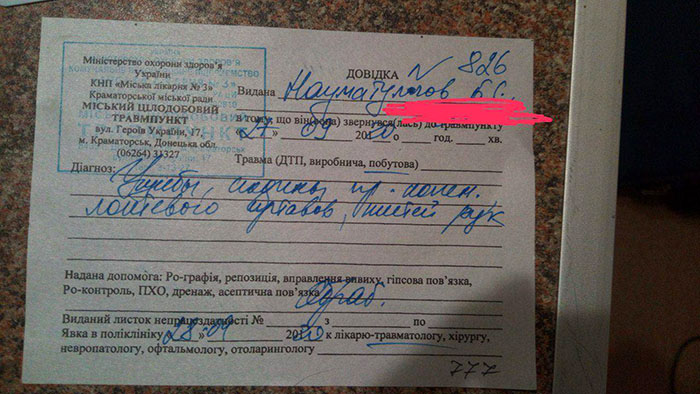 Міністерство охорони здоров'я
України
КНП «Міська лікарня № 3»
Краматорської міської ради
МІСЬКИЙ ЦІЛОДОБОВИЙ
ТРАВМПУНКТ
вул. Героїв України, 17
м. Краматорськ, Донецька обл.
(06264) 31327
ДОВІДКА № 826
Видана
в тому, що він(вона) звернувся(лась) до травмпункту
«27» 09 2020 о год. хв.
Травма (ДТП, виробнича, побутова)
Діагноз: Ушибы, ссадины пр. колен.
локтевого суставов, кистей рук
Надана допомога: Ро-графія, репозиція, вправлення вивиху, гіпсова пов'язка,
Ро-контроль, ПХО, дренаж, асептична пов'язка
Виданий листок непрацездатності № з по
Явка в поліклініку «28» 09 2020 к лікарю-травматологу, хірургу,
невропатологу, офтальмологу, отоларингологу
777